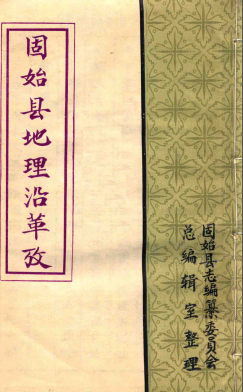 固始县地理沿革攷
固始县志编纂委员会
总编辑室整理